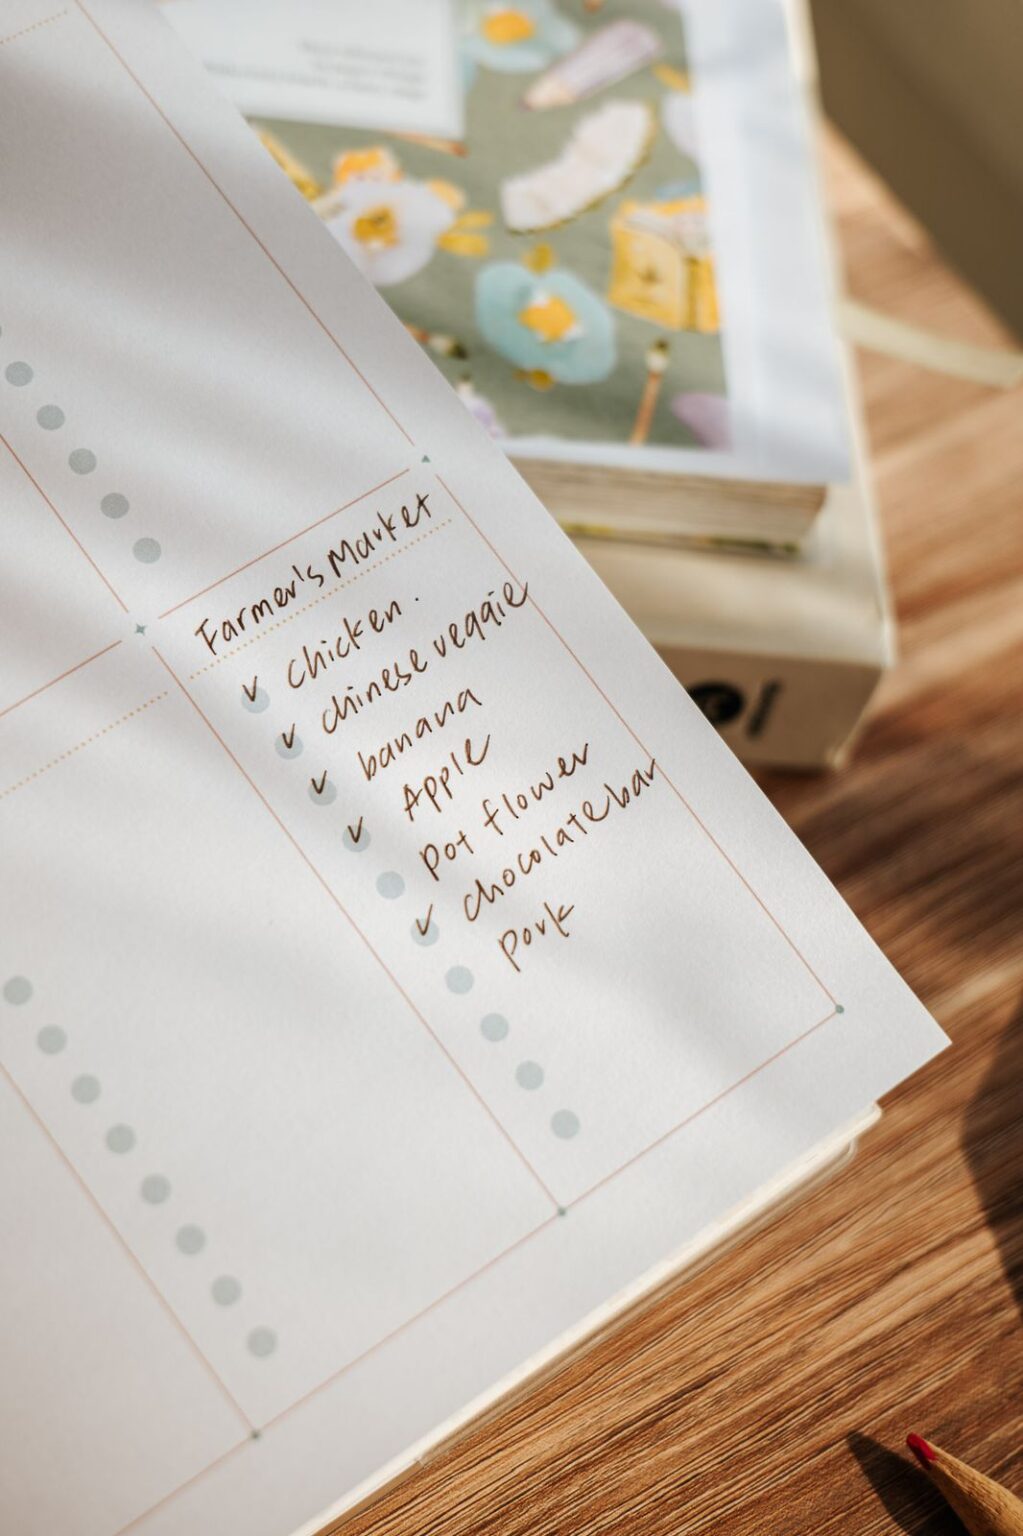 Farmer's Market
✓ chicken.
✓ chinese veggie
✓ banana
✓ Apple
pot flower
✓ chocolate bar
pork